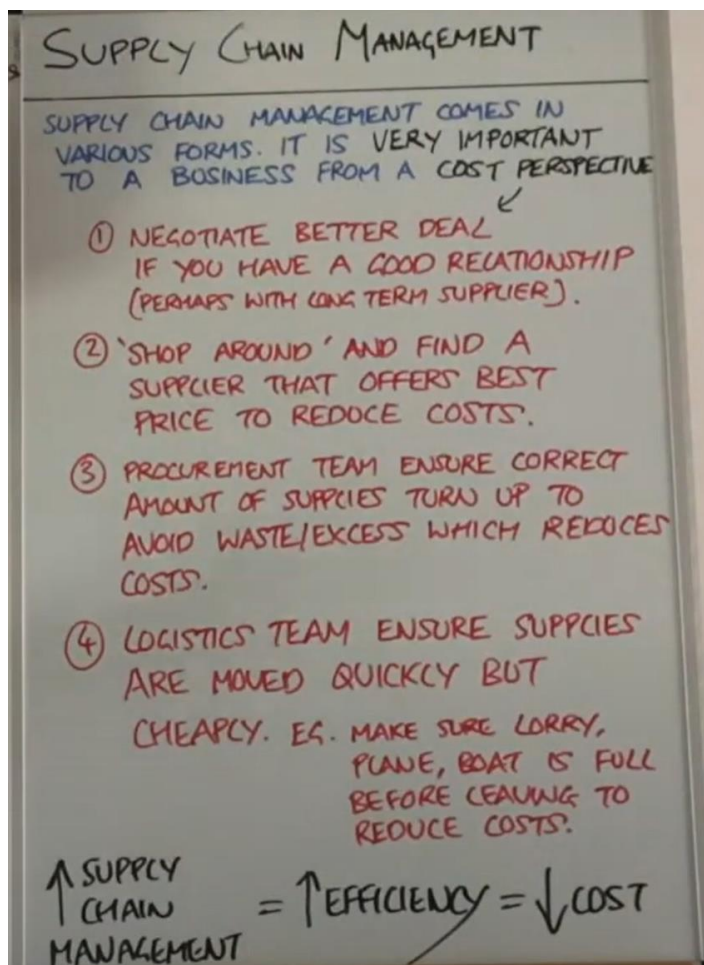 SUPPLY CHAIN MANAGEMENT
SUPPLY CHAIN MANAGEMENT COMES IN
VARIOUS FORMS. IT IS VERY IMPORTANT
TO A BUSINESS FROM A COST PERSPECTIVE
① NEGOTIATE BETTER DEAL
IF YOU HAVE A GOOD RELATIONSHIP
(PERHAPS WITH LONG TERM SUPPLIER).
② 'SHOP AROUND' AND FIND A
SUPPLIER THAT OFFERS BEST
PRICE TO REDUCE COSTS.
③ PROCUREMENT TEAM ENSURE CORRECT
AMOUNT OF SUPPLIES TURN UP TO
AVOID WASTE/EXCESS WHICH REDUCES
COSTS.
④ LOGISTICS TEAM ENSURE SUPPLIES
ARE MOVED QUICKLY BUT
CHEAPLY. EG. MAKE SURE LORRY,
PLANE, BOAT IS FULL
BEFORE LEAVING TO
REDUCE COSTS.
↑ SUPPLY
CHAIN
MANAGEMENT = ↑ EFFICIENCY = ↓ COST